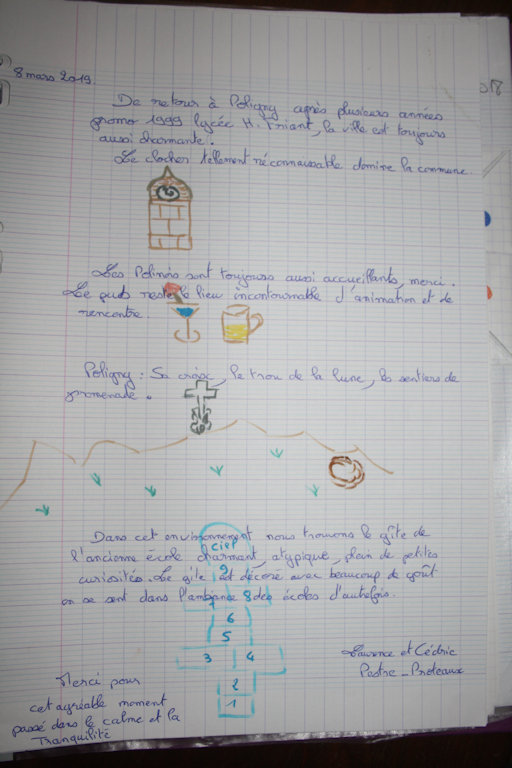 8 mars 2019.
De retour à Poligny après plusieurs années
promo 1999 lycée H. Friant, la ville est toujours
aussi charmante.
Le clocher tellement reconnaissable domine la commune.
Les Polinois sont toujours aussi accueillants, merci.
Le pub reste le lieu incontournable d'animation et de
rencontre.
Poligny : Sa croix, le trou de la lune, les sentiers de
promenade.
Dans cet environnement nous trouvons le gîte de
l'ancienne école charmant, atypique, plein de petites
curiosités. Le gîte est décoré avec beaucoup de goût
on se sent dans l'ambiance des écoles d'autrefois.
ciel
9
7 8
6
5
3 4
2
1
Laurence et Cédric
Pastre - Proteaux
Merci pour
cet agréable moment
passé dans le calme et la
Tranquilité